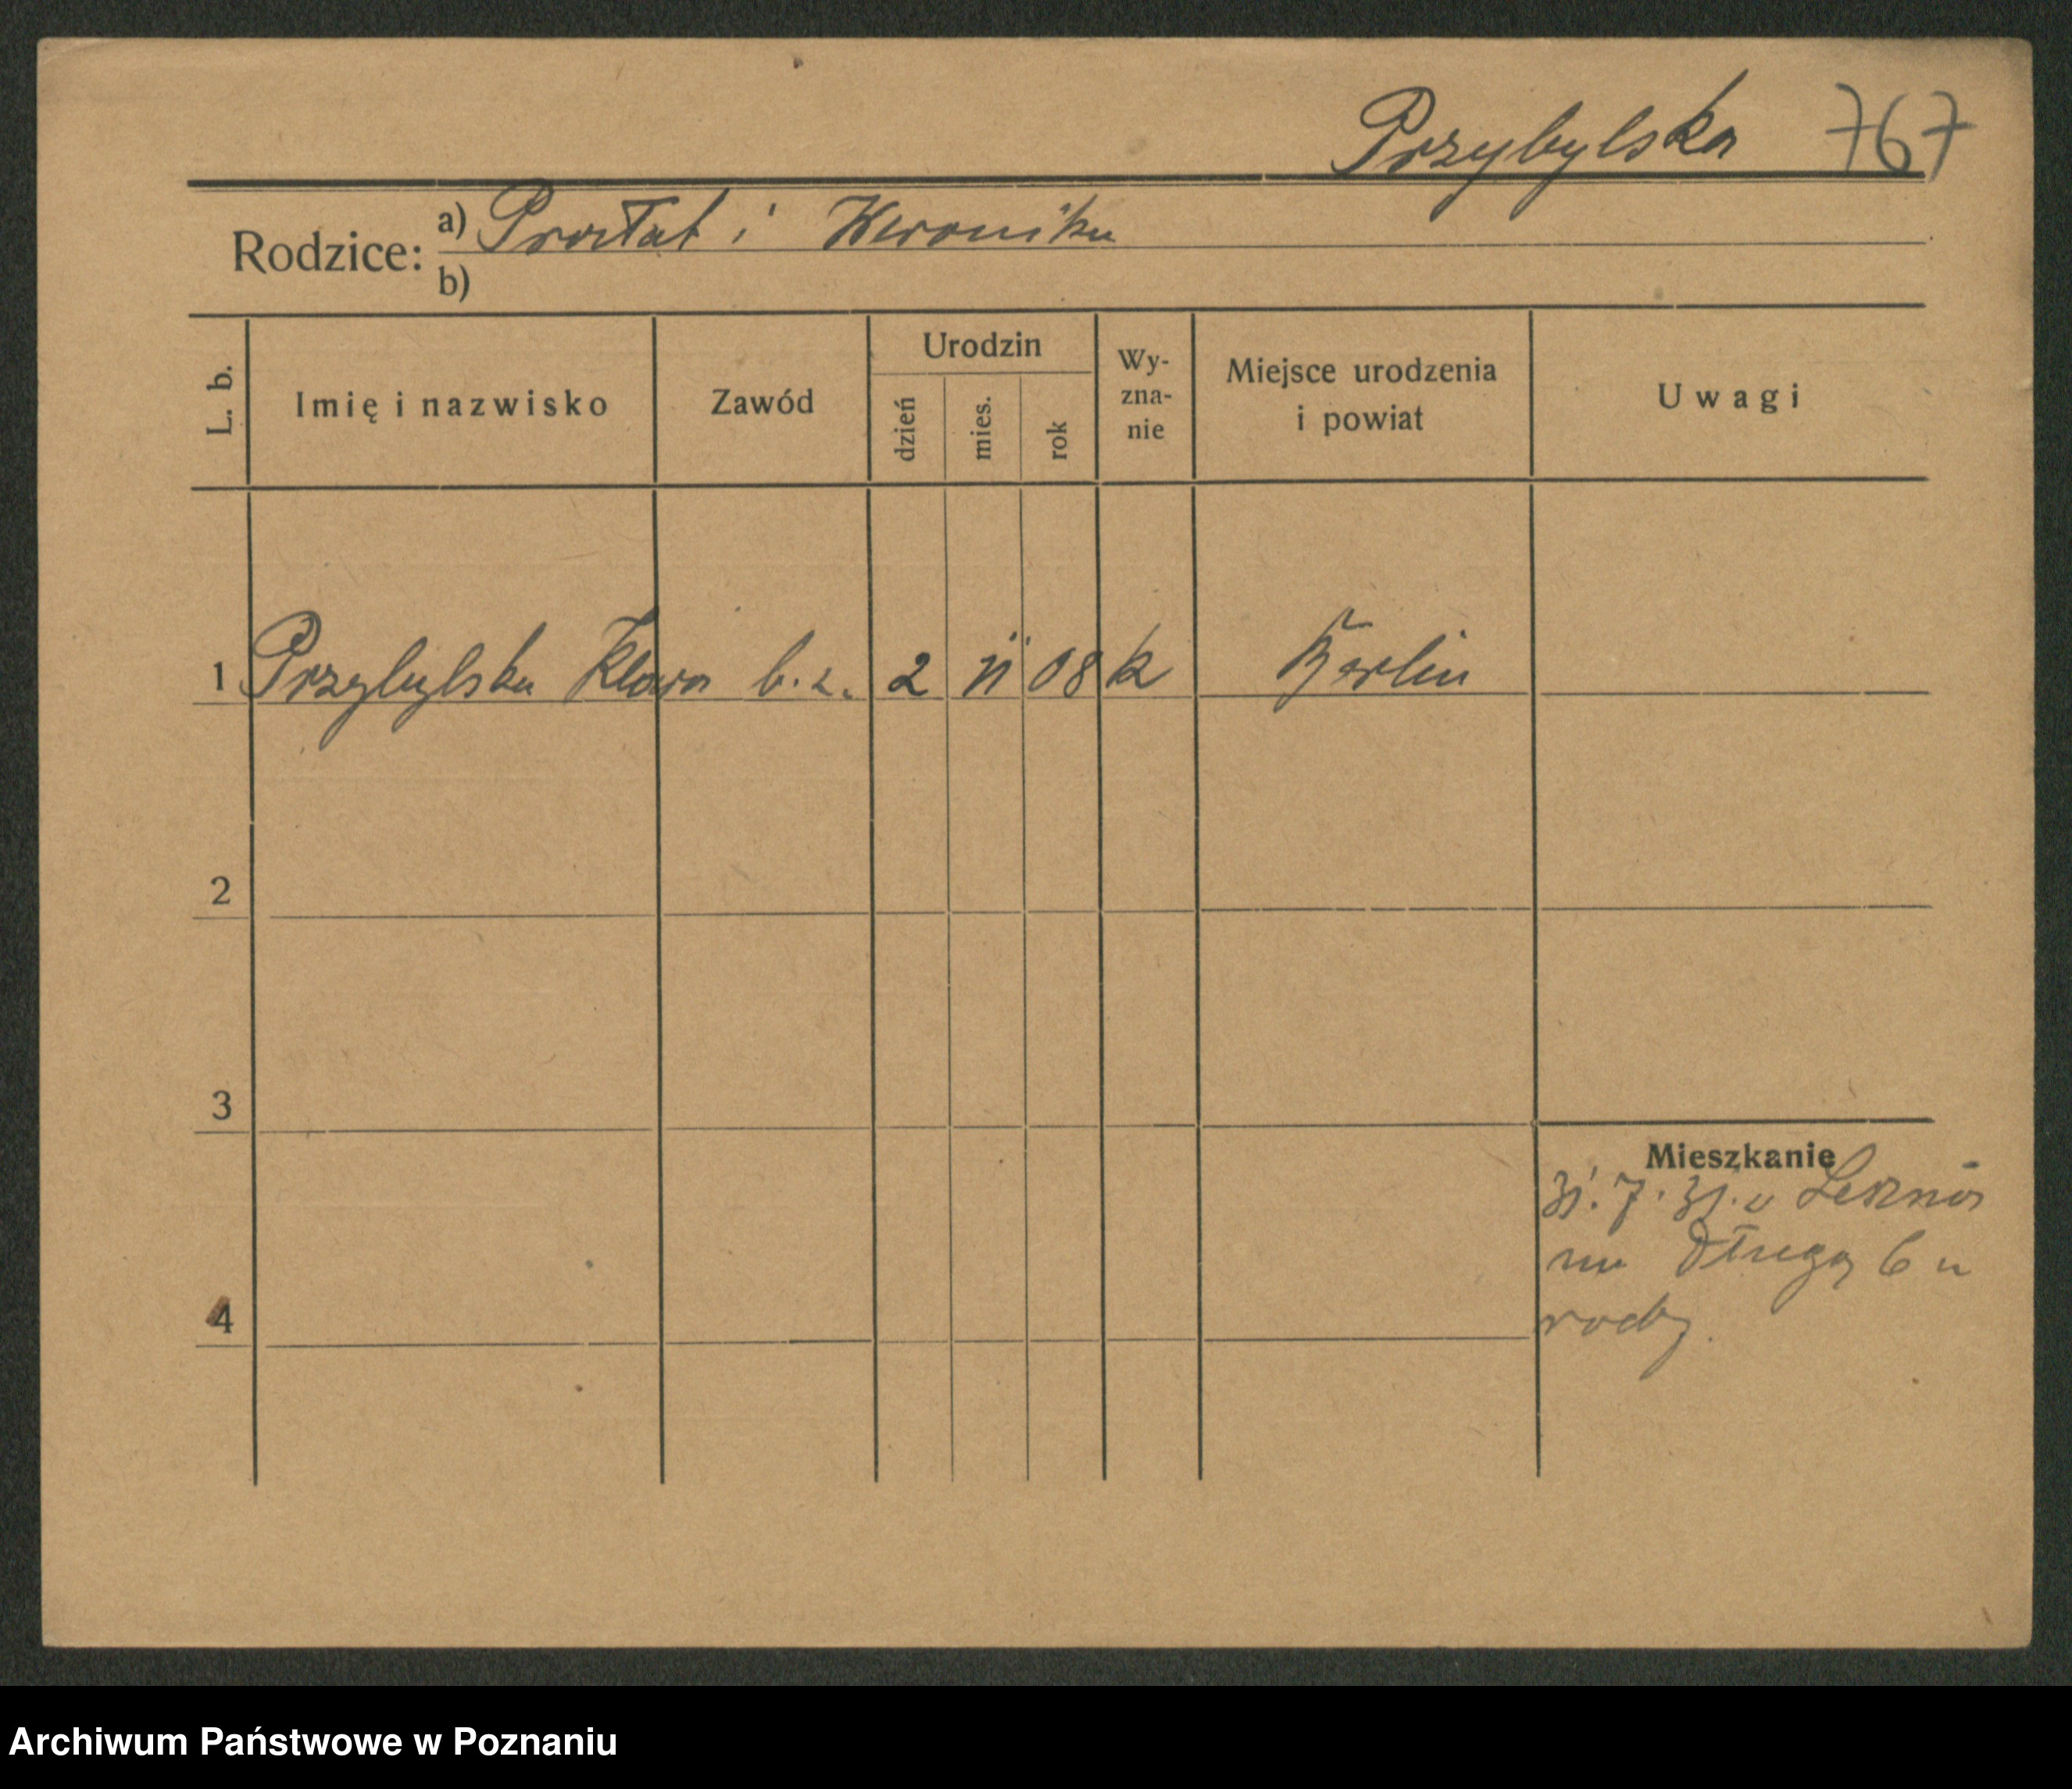 Przybylska 767
Rodzice: a) i Weronika
b)
L. b. Imię i nazwisko Zawód Urodzin dzień mies. rok Wy-zna-nie Miejsce urodzenia i powiat Uwagi
1 Przybylska Klara b. z. 2 11 08 k Berlin
2
3
Mieszkanie
31. 7. 31. z Leszna
na Długą 6 u
4
Archiwum Państwowe w Poznaniu